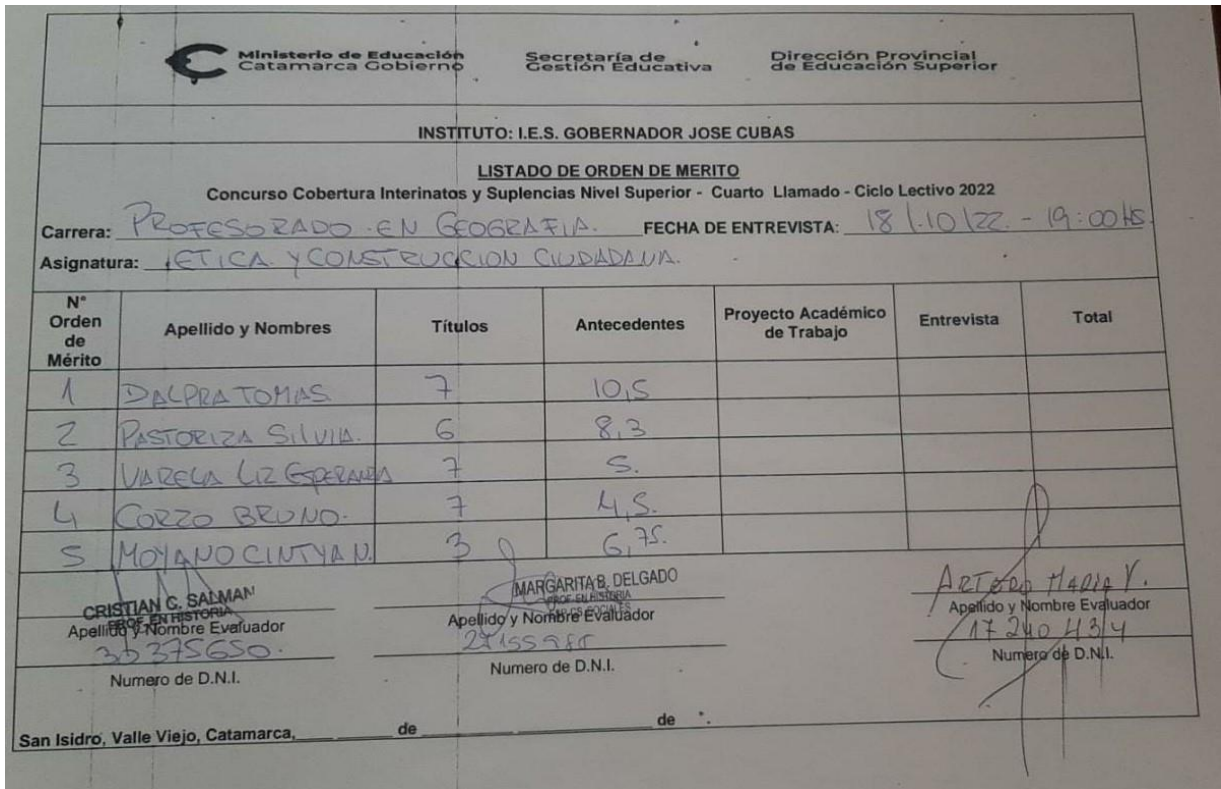 Ministerio de Educación
Catamarca Gobierno
Secretaría de
Gestión Educativa
Dirección Provincial
de Educación Superior
INSTITUTO: I.E.S. GOBERNADOR JOSE CUBAS
LISTADO DE ORDEN DE MERITO
Concurso Cobertura Interinatos y Suplencias Nivel Superior - Cuarto Llamado - Ciclo Lectivo 2022
Carrera: PROFESORADO EN GEOGRAFIA. FECHA DE ENTREVISTA: 18/10/22 - 19:00HS.
Asignatura: ETICA Y CONSTRUCCION CIUDADANA.
N° Orden de Mérito Apellido y Nombres Títulos Antecedentes Proyecto Académico de Trabajo Entrevista Total
1 DALPRA TOMAS 7 10,5
2 PASTORIZA SILVIA. 6 8,3
3 VARELA LIZ ESPERANZA 7 5.
4 CORZO BRUNO. 7 4,5.
5 MOYANO CINTYA N. 3 6,75.
CRISTIAN C. SALMAN
PROF. EN HISTORIA
Apellido y Nombre Evaluador
Numero de D.N.I.
MARGARITA B. DELGADO
PROF. EN HISTORIA
Apellido y Nombre Evaluador
Numero de D.N.I.
ARTERO MARIA V.
Apellido y Nombre Evaluador
17 240 434
Numero de D.N.I.
San Isidro, Valle Viejo, Catamarca, de de .